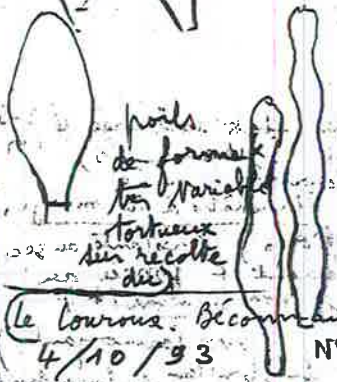 poils
de formes
très variables
tortueux
sur récolte
du
Le Louroux. Béconnais
4/10/93 N°